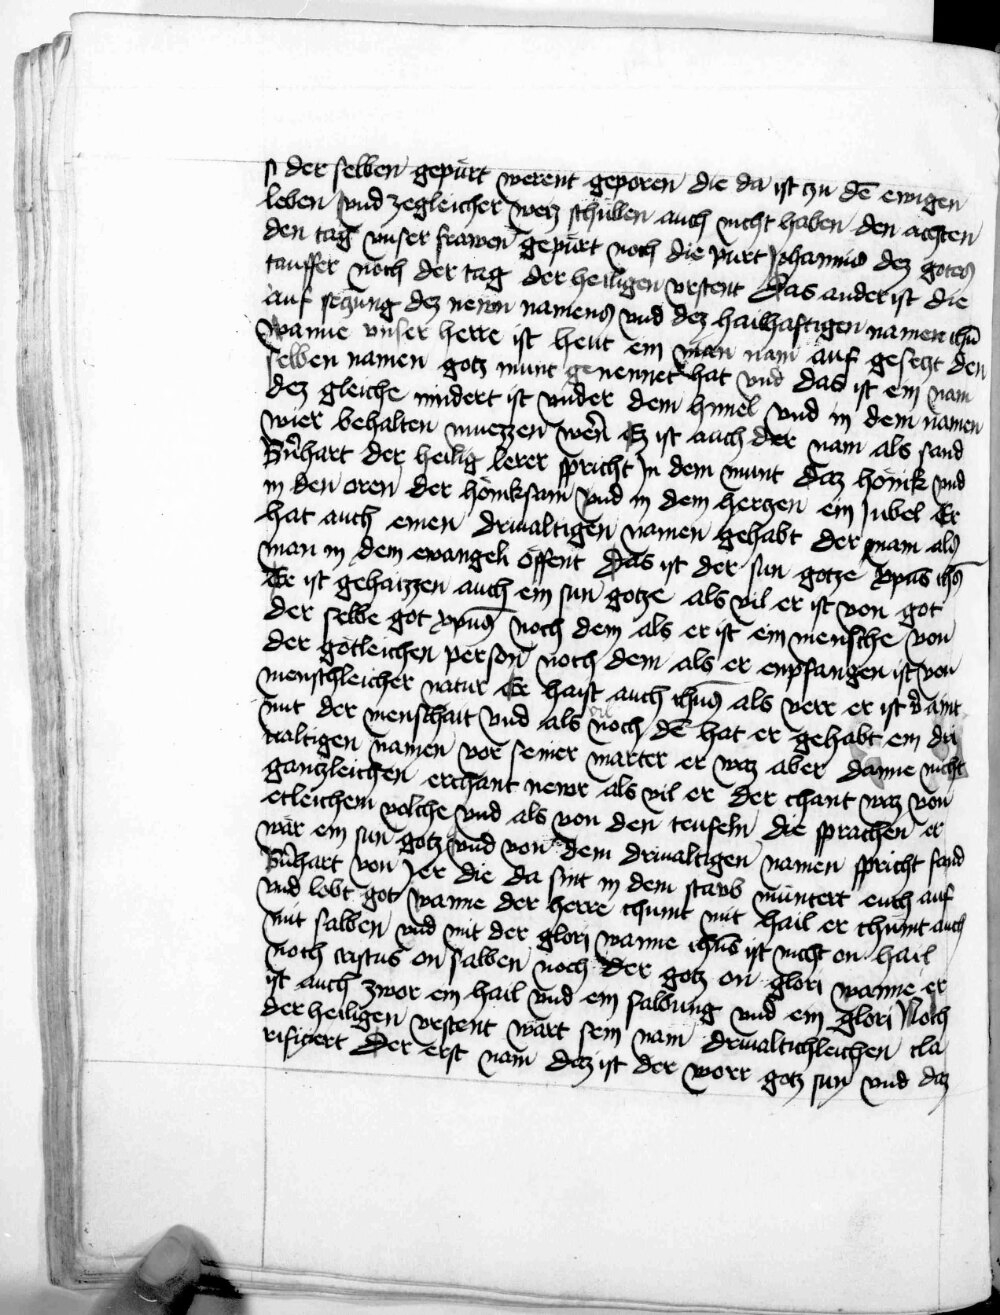 n der selben gepürt werent geporen die da ist zu dē ewigen
leben vnd zegleicher weiz schüllen auch nicht haben den achten
den tag vnser frawen gepürt noch die pürt Johannis dez gotes
tauffer noch der tag der heiligen vrstent Das ander ist die
auf seczung dez newn namens vnd dez hailhaftigen namen ihū
wanne vnser herre ist heut ein nam auf geseczt den
selben namen gotz munt genennet hat vnd das ist ein nam
dez gleiche nindert ist vnder dem himel vnd in dem namen
wier behalten muezzen wern̄ Ez ist auch der nam als sand
Bn̄hart der heilig lerer spricht In dem munt daz hönik vnd
in den oren der höniksam vnd in dem herczen ein Jubel Er
hat auch einen driualtigen namen gehabt der nam als
man in dem ewangeli öffent Das ist der sun gotze xp̄us ihūs
Er ist gehaizzen auch ein sun gotze als vil er ist von got
der selbe got xp̄us noch dem als er ist ein mensche von
der götleichen person noch dem als er enpfangen ist von
menschleicher natur Er haist auch ihūs als verr er ist v̄aint
mit der menschait vnd als vil noch dē hat er gehabt ein dri
ualtigen namen vor seiner marter er waz aber danne nicht
ganzleichen erchant newr als vil er der chant waz von
etleichem volche vnd als von den teufeln die sprachen er
wär ein sun gotz vnd von dem driualtigen namen spricht sand
Bn̄hart von Jer die da sint in dem staub müntert euch auf
vnd lobt got wanne der herre chumt mit hail er chumt auch
mit salben vnd mit der glori wanne ihūs ist nicht on hail
noch cristus on salben noch der gotz on glori wanne er
ist auch zwor ein hail vnd ein salbung vnd ein glori Noch
der heiligen vrstent wart sein nam driualtichleichen cla
rificiert Der erst nam daz ist der worr gotz sun vnd daz